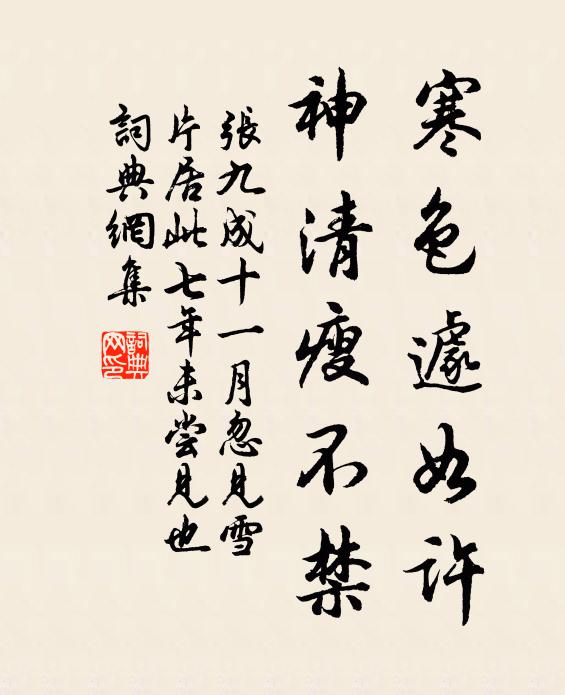 寒色遽如許
神清瘦不禁
張九成十一月忽見雪
片居此七年未嘗見也
詞典網集
詞典网印